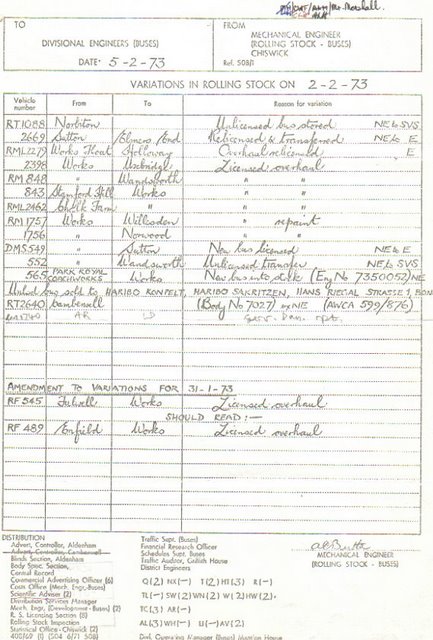 TO
DIVISIONAL ENGINEERS (BUSES)
DATE: 5-2-73
FROM
MECHANICAL ENGINEER
(ROLLING STOCK - BUSES)
CHISWICK
Ref. 508/1
VARIATIONS IN ROLLING STOCK ON 2-2-73
Vehicle number From To Reason for variation
RT1088 Norbiton Unlicensed bus stored NE to SVS
2669 Sutton Elmers End Relicensed & transferred NE to E
RML2279 Works Float Holloway Overhaul relicensed E
2398 Works Uxbridge Licensed overhaul
RM 848 " Wandsworth " "
843 Stamford Hill Works " "
RML2462 Chalk Farm " " "
RM1757 Works Willesden " repaint
1756 " Norwood " "
DMS549 " Sutton New bus licensed NE to E
552 " Wandsworth Unlicensed transfer NE to SVS
565 PARK ROYAL COACHWORKS Works New bus into stock (Eng No 7350052) NE
sold to HARIBO KONFELT, HARIBO SAKRITZEN, HANS RIEGAL STRASSE 1, BON
RT2640 Camberwell (Body No 7027) ex NE (AWCA 599/876)
AMENDMENT TO VARIATIONS FOR 31-1-73
RF 545 Fulwell Works Licensed overhaul
SHOULD READ:-
RF 489 Enfield Works Licensed overhaul
DISTRIBUTION
Advert. Controller, Aldenham
Advert. Controller, Camberwell
Blinds Section, Aldenham
Body Spec. Section,
Central Record
Commercial Advertising Officer (6)
Costs Office (Mech. Engr. Buses)
Scientific Adviser (2)
Distribution Services Manager
Mech. Engr. (Development - Buses) (2)
R. S. Licensing Section (8)
Rolling Stock Inspection
Statistical Office - Chiswick (2)
Traffic Supt. (Buses)
Financial Research Officer
Schedules Supt. Buses
Traffic Auditor, Griffith House
District Engineers
Q(2) NX(-) T(2) HT(3) R(-)
TL(-) SW(2) WN(2) W(2) HW(2).
TC(3) AR(-)
AL(3) WH(-) U(-) AV(2)
MECHANICAL ENGINEER
(ROLLING STOCK - BUSES)